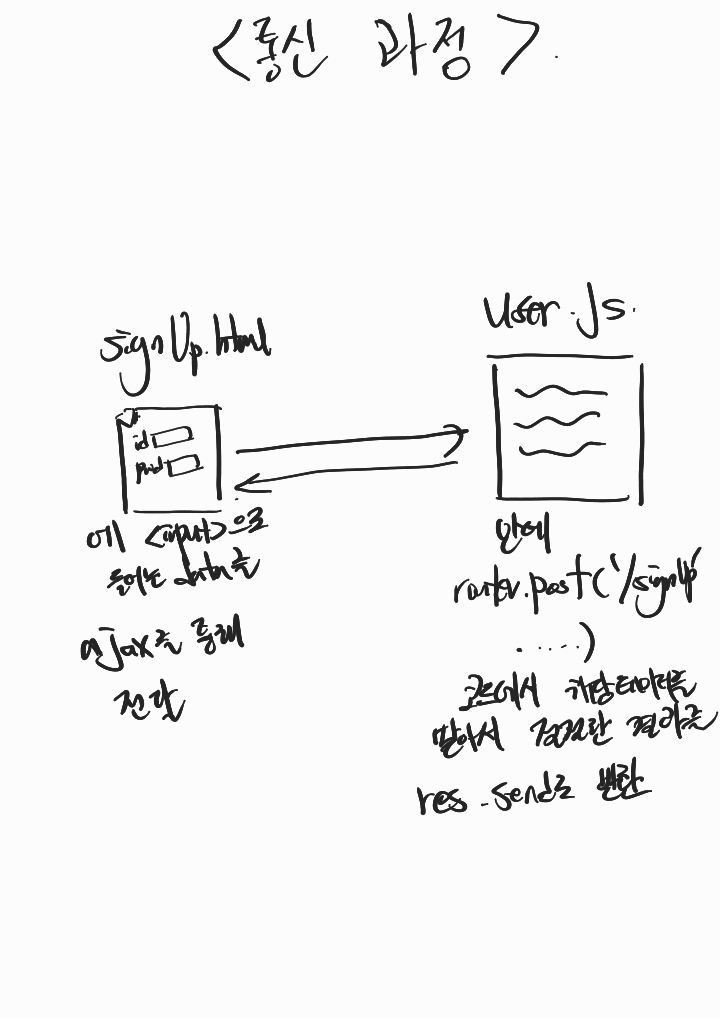 <통신 과정>
signUp.html
id
pwd
에 <input>으로
들어가는 data를
ajax를 통해
전달
User.js
안에
router.post('/signUp'
.....)
코드에서 해당데이터를
받아서 적절한 결과를
res.send로 반환